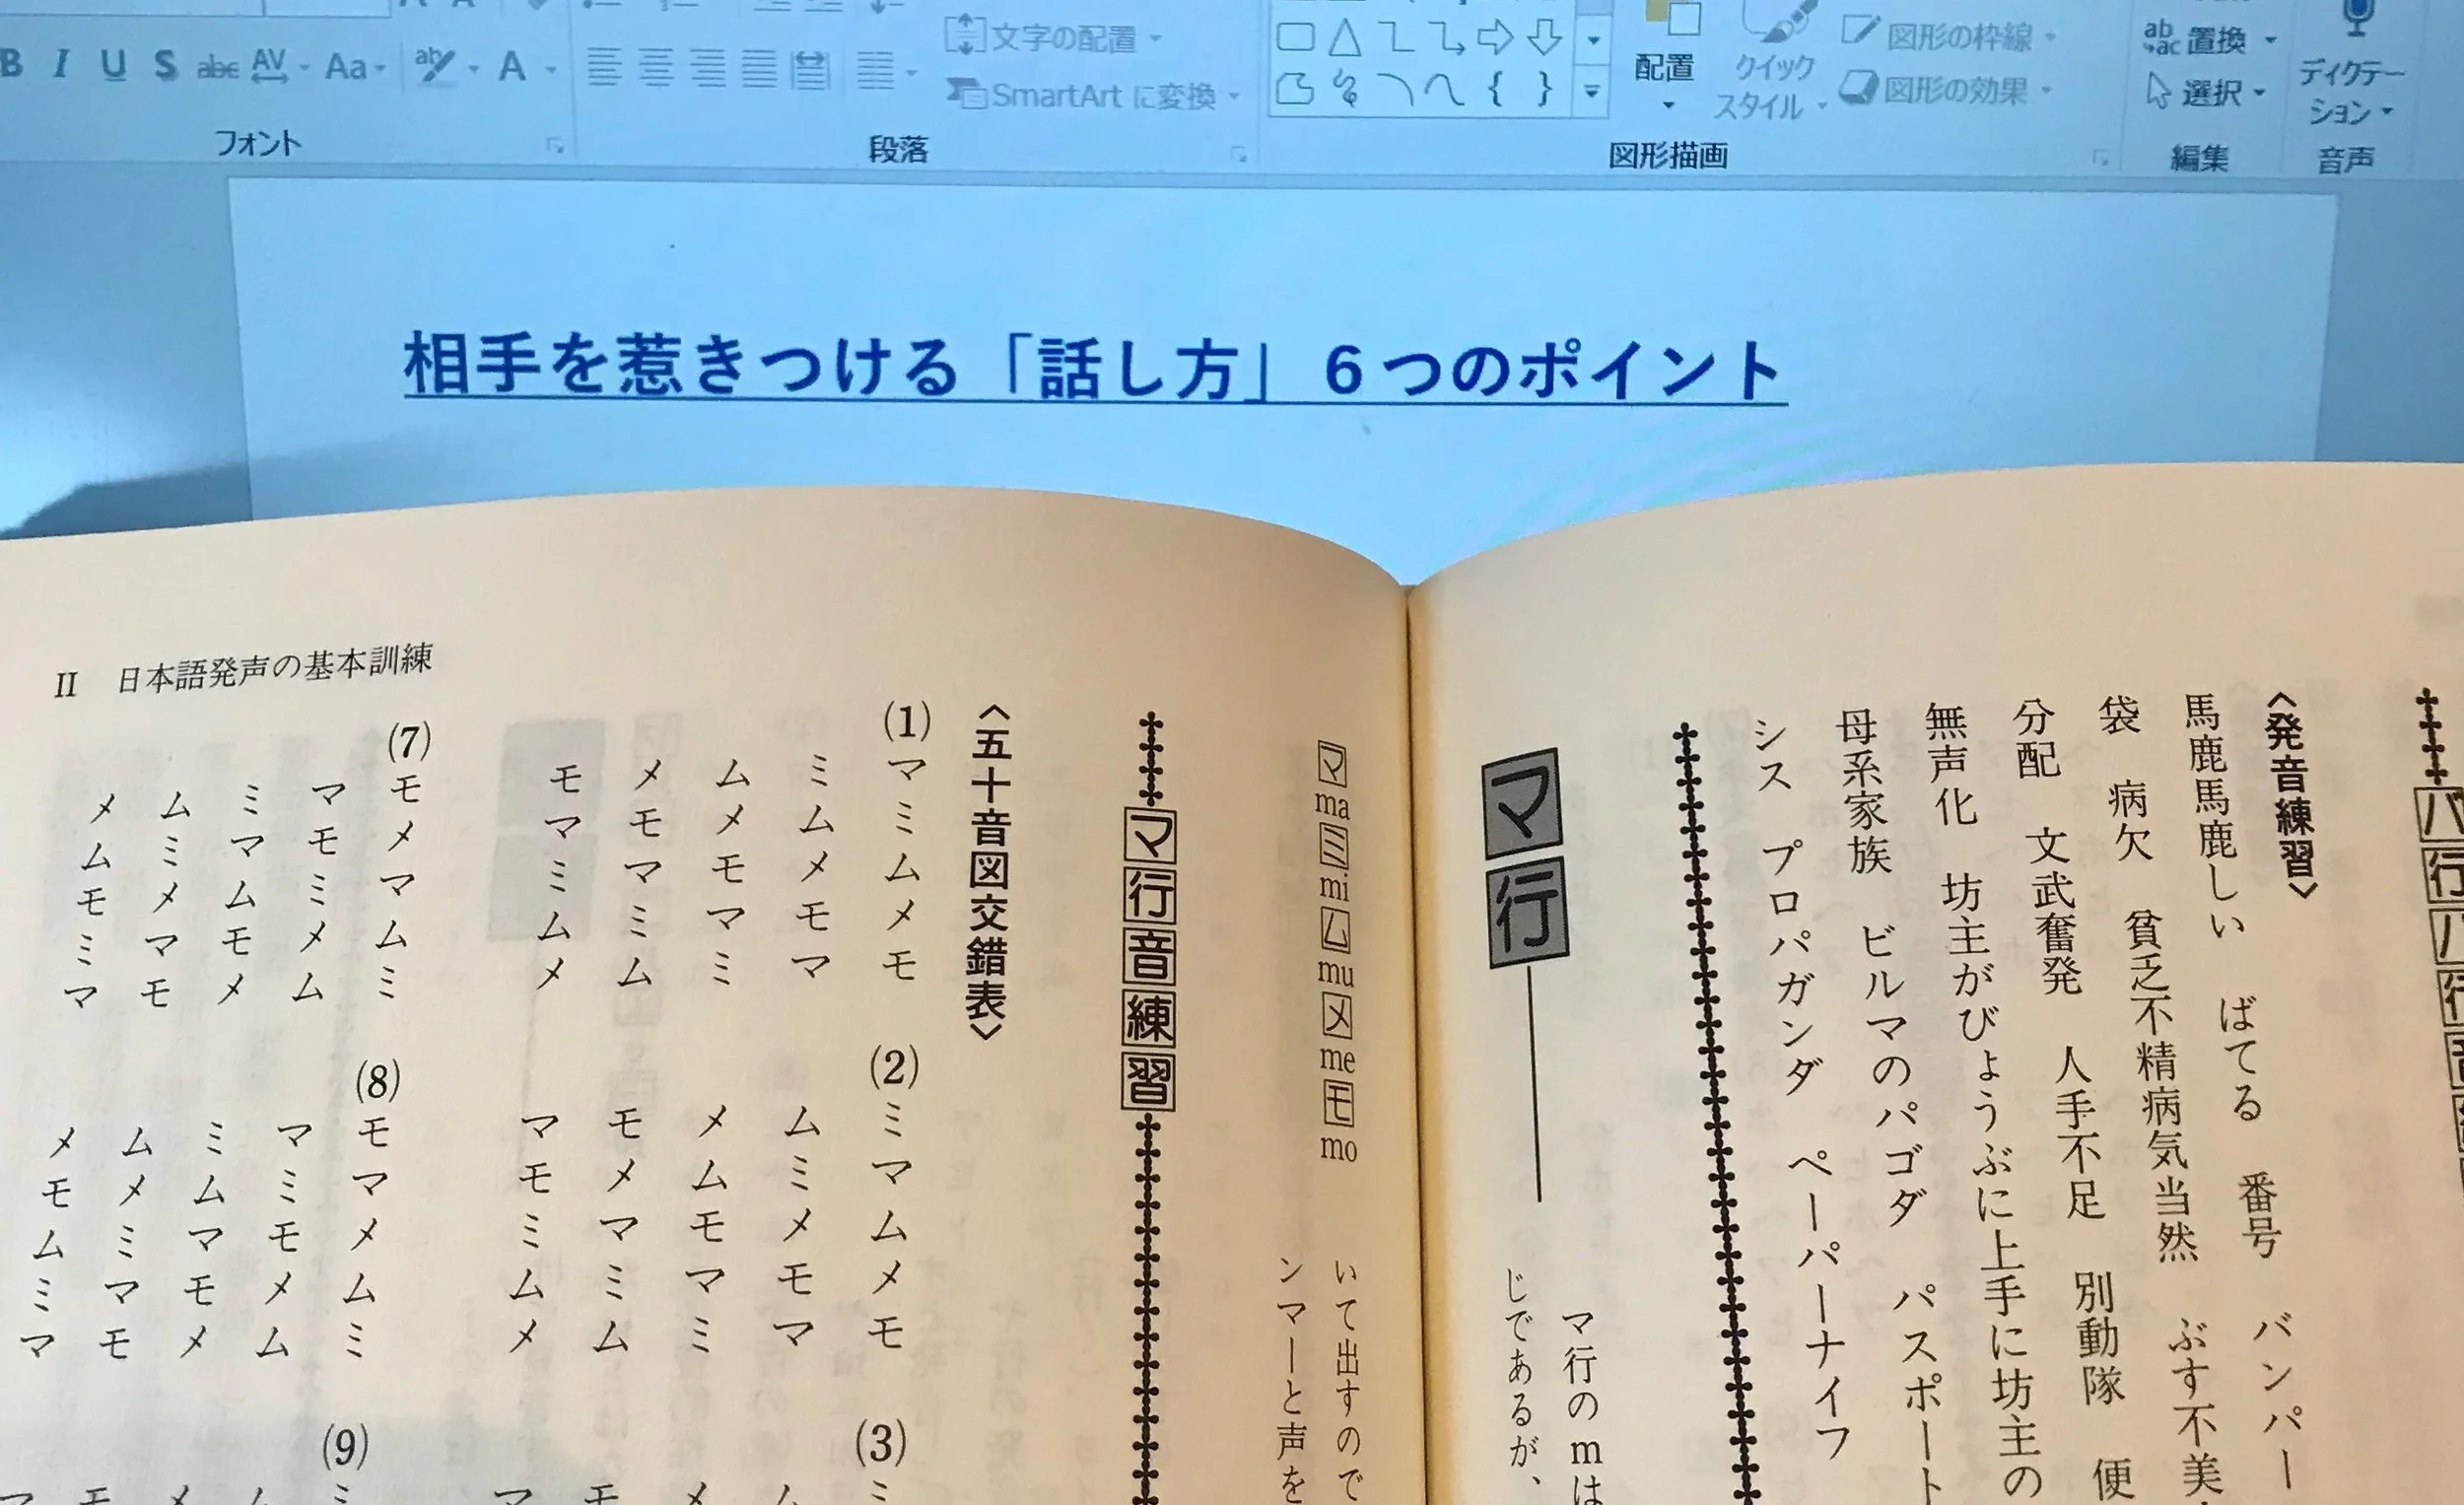 B I U S abc AV Aa ab A
文字の配置
SmartArt に変換
配置
クイック
スタイル
図形の枠線
図形の効果
ab
ac 置換
選択
ディクテー
ション
フォント
段落
図形描画
編集
音声
相手を惹きつける「話し方」６つのポイント
〈発音練習〉
馬鹿馬鹿しい ばてる 番号 バンパー
袋 病欠 貧乏不精病気当然 ぶす不美
分配 文武奮発 人手不足 別動隊 便
無声化 坊主がびょうぶに上手に坊主の
母系家族 ビルマのパゴダ パスポート
シス プロパガンダ ペーパーナイフ
マ行
マ行のmは
じであるが、
マ ma ミ mi ム mu メ me モ mo
いて出すので
ンマーと声を
マ行音練習
〈五十音図交錯表〉
II 日本語発声の基本訓練
(1)
マミムメモ
ミムメモマ
ムメモマミ
メモマミム
モマミムメ
(2)
ミマムメモ
ムミメモマ
メムモマミ
モメマミム
マモミムメ
(3)
ミ
ム
メ
モ
マ
(7)
モメマムミ
マモミメム
ミマムモメ
ムミメマモ
メムモミマ
(8)
モマメムミ
マミモメム
ミムマモメ
ムメミマモ
メモムミマ
(9)
ミ
ム
メ
モ
マ